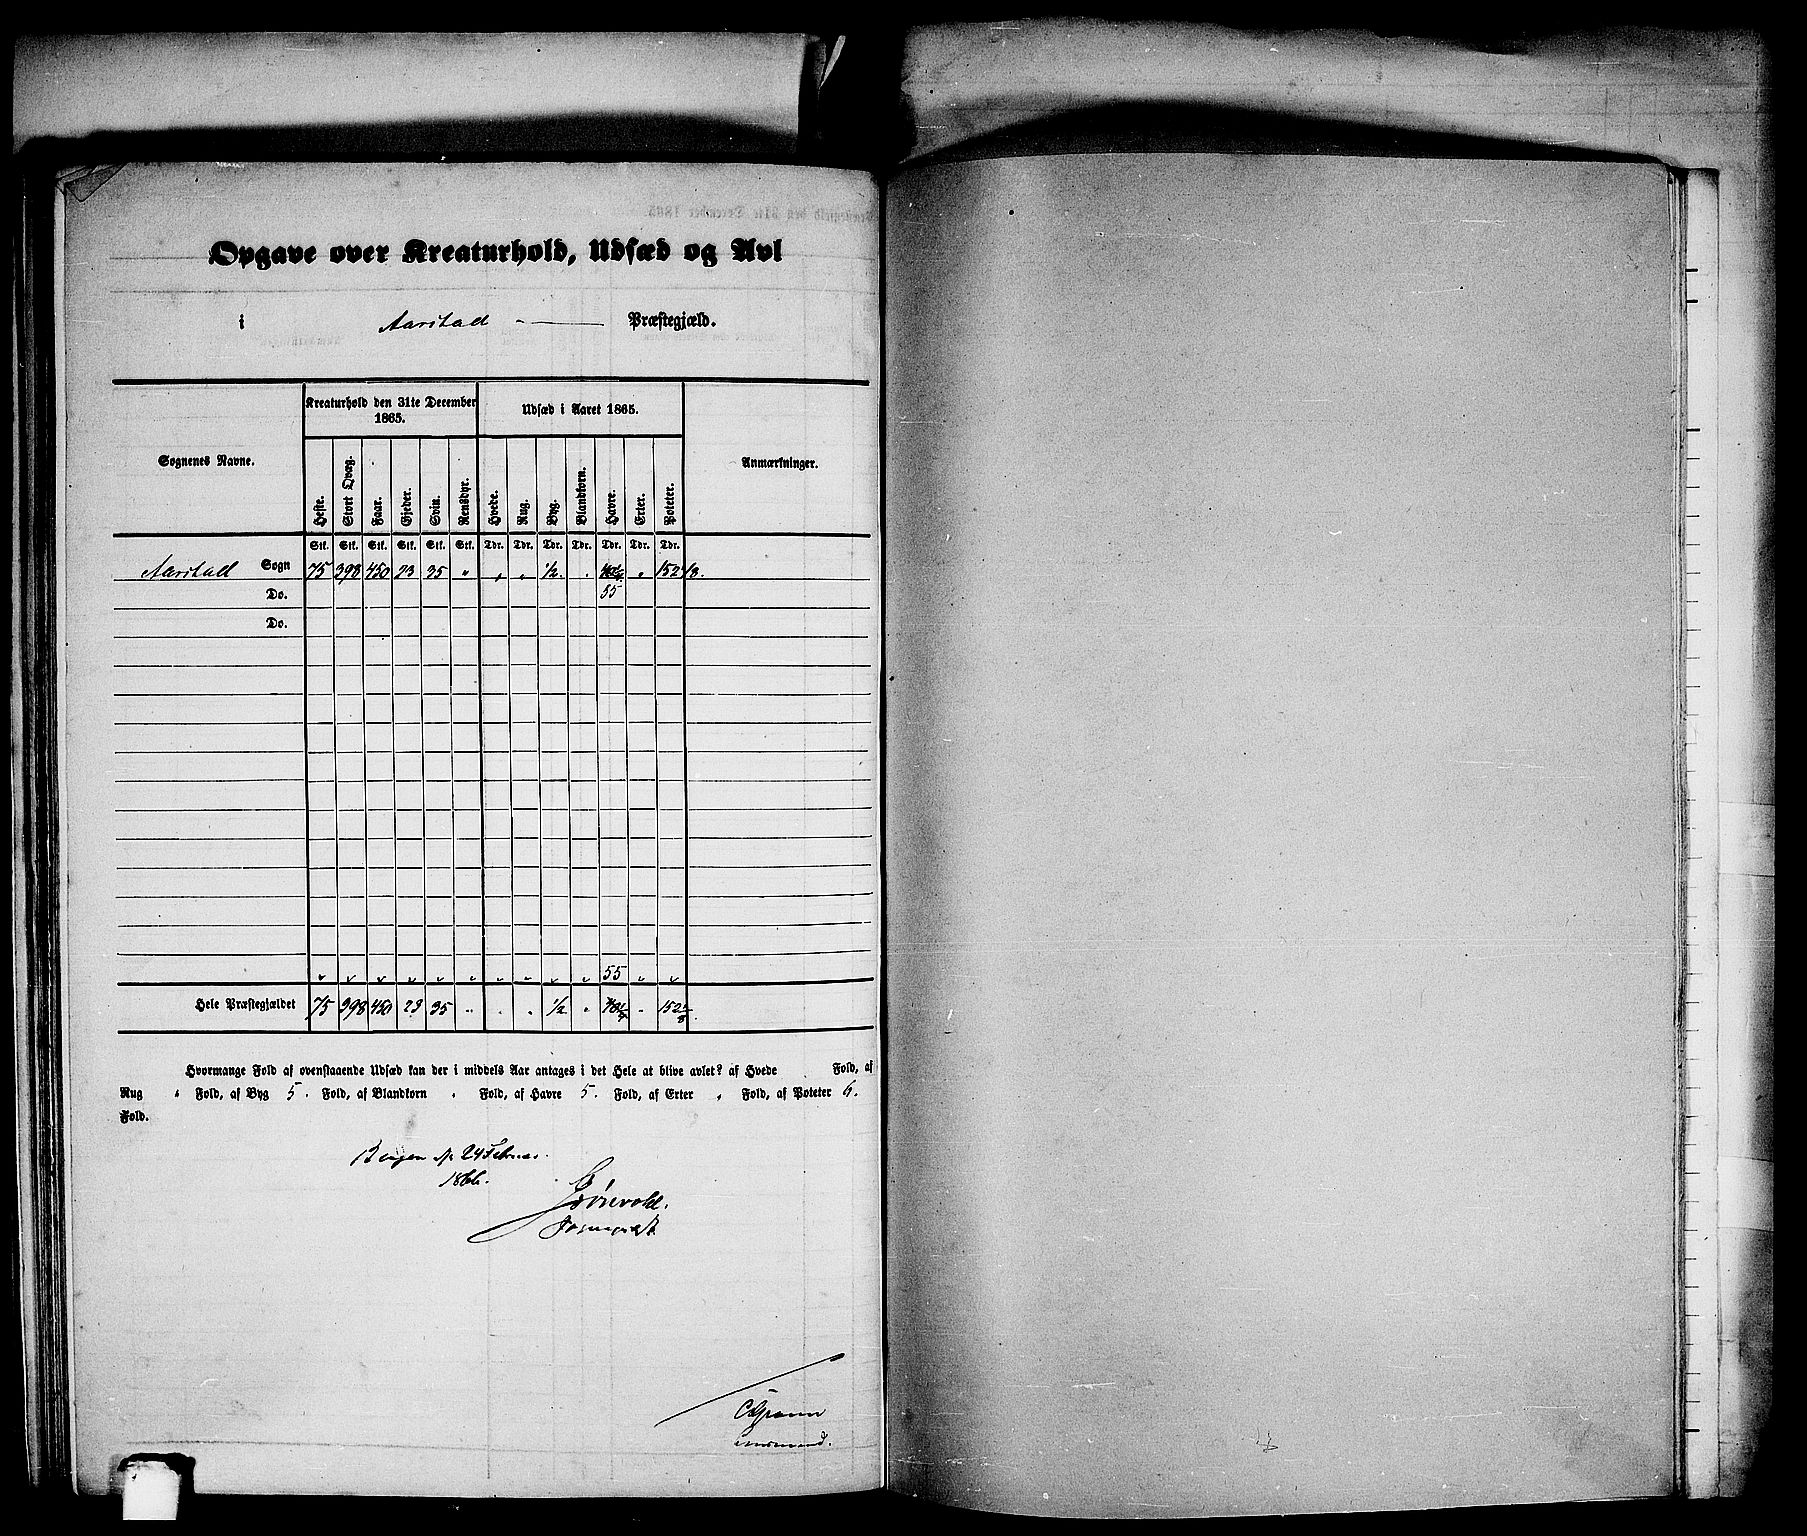 Opgave over Kreaturhold, Udsæd og Avl
i Aarstad - Præstegjæld.
Sognenes Navne.
Kreaturhold den 31te December 1865.
Udsæd i Aaret 1865.
Anmærkninger.
Heste. Stort Qvæg. Faar. Gjeder. Sviin. Rensdyr. Hvede. Rug. Byg. Blandkorn. Havre. Erter. Poteter.
Stk. Stk. Stk. Stk. Stk. Stk. Tdr. Tdr. Tdr. Tdr. Tdr. Tdr. Tdr.
Aarstad Sogn 75 398 450 23 35 " " " 1/2. " " 152 1/8.
Do. 55
Do.
" " " " " " " " " " 55 " "
Hele Præstegjældet 75 398 450 23 35 " " " 1/2 " " 152 1/8.
Hvormange Fold af ovenstaaende Udsæd kan der i middels Aar antages i det Hele at blive avlet? af Hvede Fold, af
Rug " Fold, af Byg 5. Fold, af Blandkorn " Fold, af Havre 5. Fold, af Erter " Fold, af Poteter 6.
Fold.
Bergen 24 Februar
1866.
Grönvold.
Sognepræst
Lensmand.